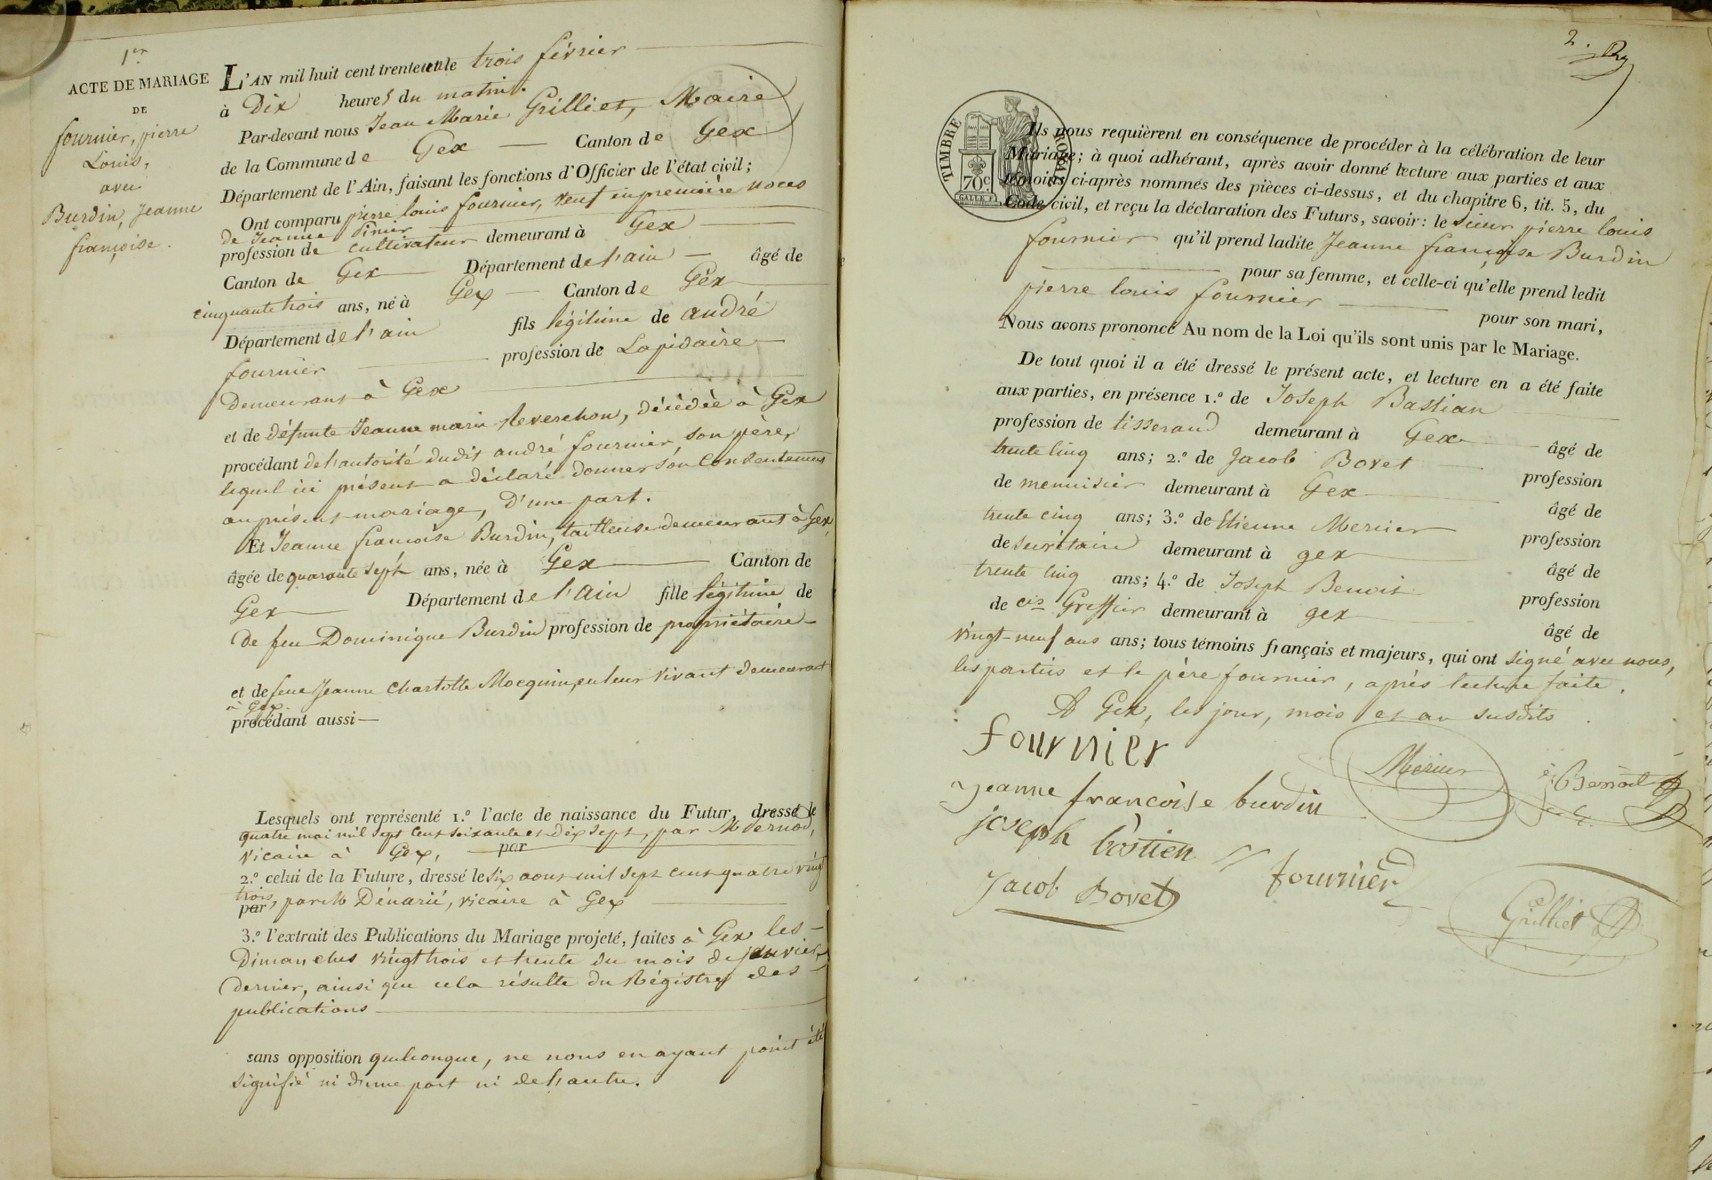 1er
ACTE DE MARIAGE
DE
fournier, pierre
Louis,
avec
Burdin, Jeanne
françoise.
L'AN mil huit cent trente et un le trois février
à Dix heures du matin.
Par-devant nous Jean Marie Grilliet, Maire
de la Commune de Gex Canton de Gex
Département de l'Ain, faisant les fonctions d'Officier de l'état civil;
Ont comparu pierre Louis fournier, veuf en première noces
de Jeanne
profession de cultivateur demeurant à Gex
Canton de Gex Département de l'ain âgé de
cinquante trois ans, né à Gex Canton de Gex
Département de l'ain fils légitime de andré
fournier profession de Lapidaire
Demeurant à Gex
et de défunte Jeanne marie Reverchon, décédée à Gex
procédant de l'autorité dudit andré fournier son père,
lequel ici présent a déclaré donner son Consentement
au présent mariage, D'une part.
Et Jeanne françoise Burdin, tailleuse demeurant à Gex,
âgée de quarante sept ans, née à Gex Canton de
Gex Département de l'Ain fille légitime de
De feu Dominique Burdin profession de propriétaire
et de feue Jeanne Charlotte Mocquin, en leur vivant demeurant
à Gex.
procédant aussi
Lesquels ont représenté 1.º l'acte de naissance du Futur, dressé le
quatre mai mil sept cent soixante et dix sept, par M. Vernod,
vicaire à Gex, par
2.º celui de la Future, dressé le six aout mil sept cent quatre vingt
trois, par M. Dénarié, vicaire à Gex
par
3.º l'extrait des Publications du Mariage projeté, faites à Gex les
Dimanches vingt trois et trente du mois de janvier
dernier, ainsi que cela résulte du Régistre des
publications
sans opposition quelconque, ne nous en ayant point été
signifié ni d'une part ni de l'autre.
2.
TIMBRE ROYAL
70c
Ils nous requièrent en conséquence de procéder à la célébration de leur
Mariage; à quoi adhérant, après avoir donné lecture aux parties et aux
témoins ci-après nommés des pièces ci-dessus, et du chapitre 6, tit. 5, du
Code civil, et reçu la déclaration des Futurs, savoir: le sieur pierre louis
fournier qu'il prend ladite Jeanne françoise Burdin
pour sa femme, et celle-ci qu'elle prend ledit
pierre louis fournier pour son mari,
Nous avons prononcé Au nom de la Loi qu'ils sont unis par le Mariage.
De tout quoi il a été dressé le présent acte, et lecture en a été faite
aux parties, en présence 1.º de Joseph Bastian
profession de tisserand demeurant à Gex âgé de
trente cinq ans; 2.º de Jacob Bovet profession
de menuisier demeurant à Gex âgé de
trente cinq ans; 3.º de Etienne Mercier profession
de secrétaire demeurant à gex âgé de
trente cinq ans; 4.º de Joseph Benoit profession
de cis Greffier demeurant à gex âgé de
vingt-neuf ans ans; tous témoins français et majeurs, qui ont signé avec nous,
les parties et le père fournier, après lecture faite.
A Gex, les jour, mois et an susdits.
fournier
Mercier
Benoit
jeanne francoise burdin
joseph bastien
fournier
Jacob Bovet
Grilliet